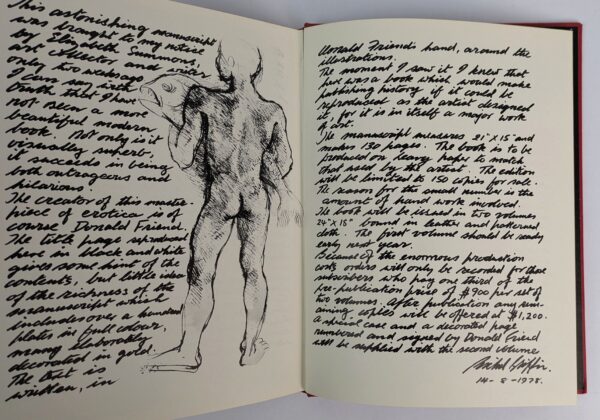 This astonishing manuscript
was brought to my notice
by Elizabeth Summons,
art collector and friend
only two weeks ago
I can say with
truth that I have
not seen a more
beautiful modern
book. Not only is it
visually superb,
it succeeds in being
both outrageous and
hilarious.
The creator of this master-
piece of erotica is of
course Donald Friend.
The title page reproduced
here in black and white
gives some hint of the
contents, but little idea
of the richness of the
manuscript which
includes over a hundred
plates in full colour,
many elaborately
decorated in gold.
The text is
written, in
Donald Friend's hand, around the
illustrations.
The moment I saw it I knew that
here was a book which would make
publishing history if it could be
reproduced as the artist designed
it, for it is in itself a major work
of art.
The manuscript measures 21" x 15" and
makes 130 pages. The book is to be
produced on heavy paper to match
that used by the artist. The edition
will be limited to 150 copies for sale.
The reason for the small number is the
amount of hand work involved.
The book will be issued in two volumes
24" x 15" bound in leather and patterned
cloth. The first volume should be ready
early next year.
Because of the enormous production
costs orders will only be recorded for those
subscribers who pay one third of the
pre-publication price of $900 per set of
two volumes. After publication any rem-
aining copies will be offered at $1,200.
A special case and a decorated page
numbered and signed by Donald Friend
will be supplied with the second volume
Griffin.
14-8-1978.